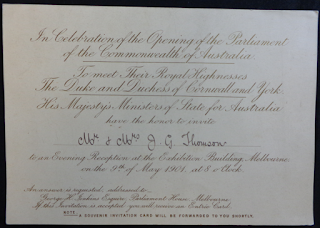 In Celebration of the Opening of the Parliament
of the Commonwealth of Australia
To meet Their Royal Highnesses
The Duke and Duchess of Cornwall and York
His Majesty's Ministers of State for Australia
have the honor to invite
Mr & Mrs J. G. Thomson
to an Evening Reception at the Exhibition Building Melbourne,
on the 9th of May 1901, at 8 o'Clock.
An answer is requested addressed to
George H. Jenkins Esquire Parliament House Melbourne
If this Invitation is accepted you will receive an Entrée Card.
NOTE: A SOUVENIR INVITATION CARD WILL BE FORWARDED TO YOU SHORTLY.